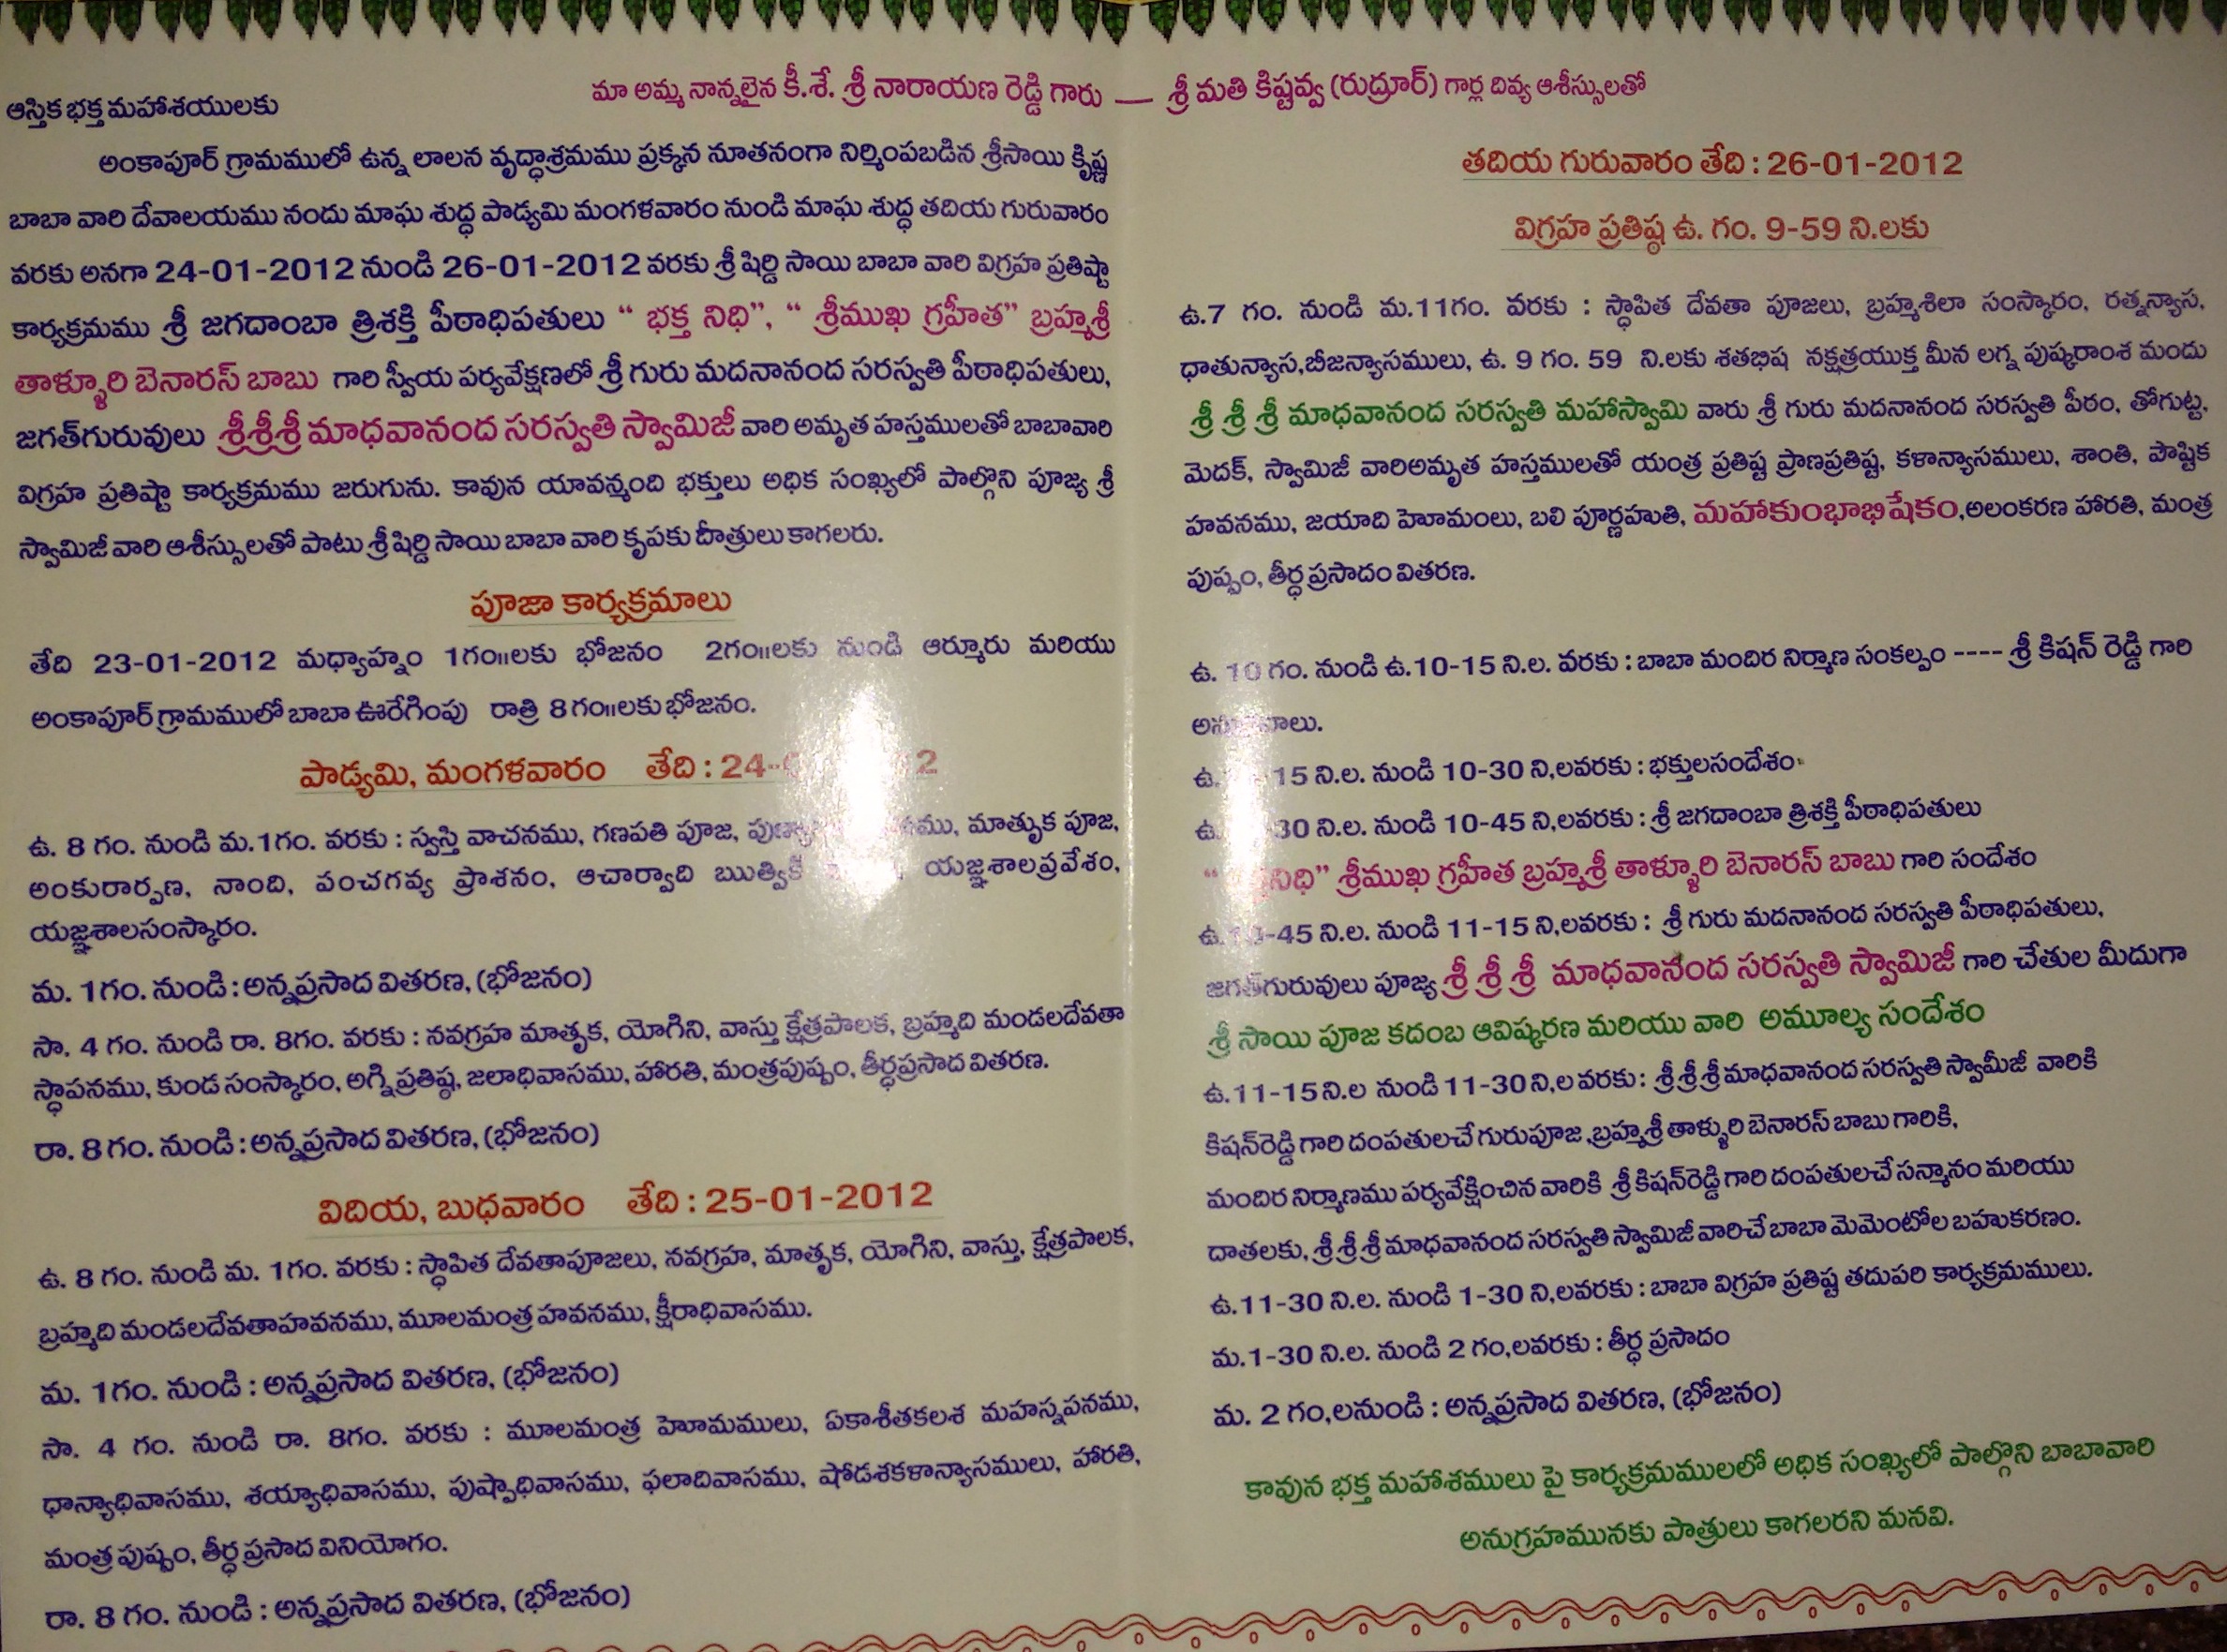 మా అమ్మ నాన్నలైన కీ.శే. శ్రీ నారాయణ రెడ్డి గారు — శ్రీ మతి కిష్టవ్వ (రుద్రూర్) గార్ల దివ్య ఆశీస్సులతో
ఆస్తిక భక్త మహాశయులకు
అంకాపూర్ గ్రామములో ఉన్న లాలన వృద్ధాశ్రమము ప్రక్కన నూతనంగా నిర్మింపబడిన శ్రీసాయి కృిష్ణ
బాబా వారి దేవాలయము నందు మాఘ శుద్ధ పాడ్యమి మంగళవారం నుండి మాఘ శుద్ధ తదియ గురువారం
వరకు అనగా 24-01-2012 నుండి 26-01-2012 వరకు శ్రీ షిర్డి సాయి బాబా వారి విగ్రహ ప్రతిష్టా
కార్యక్రమము శ్రీ జగదాంబా త్రిశక్తి పీఠాధిపతులు “ భక్త నిధి”, “ శ్రీముఖ గ్రహీత” బ్రహ్మశ్రీ
తాళ్ళూరి బెనారస్ బాబు గారి స్వీయ పర్యవేక్షణలో శ్రీ గురు మదనానంద సరస్వతి పీఠాధిపతులు,
జగత్‌గురువులు శ్రీశ్రీశ్రీ మాధవానంద సరస్వతి స్వామిజీ వారి అమృత హస్తములతో బాబావారి
విగ్రహ ప్రతిష్టా కార్యక్రమము జరుగును. కావున యావన్మంది భక్తులు అధిక సంఖ్యలో పాల్గొని పూజ్య శ్రీ
స్వామిజీ వారి ఆశీస్సులతో పాటు శ్రీ షిర్డి సాయి బాబా వారి కృపకు పాత్రులు కాగలరు.
పూజా కార్యక్రమాలు
తేది 23-01-2012 మధ్యాహ్నం 1గం॥లకు భోజనం 2గం॥లకు నుండి ఆర్మూరు మరియు
అంకాపూర్ గ్రామములో బాబా ఊరేగింపు రాత్రి 8 గం॥లకు భోజనం.
పాడ్యమి, మంగళవారం తేది : 24-
ఉ. 8 గం. నుండి మ.1గం. వరకు : స్వస్తి వాచనము, గణపతి పూజ, మాతృుక పూజ,
అంకురార్పణ, నాంది, పంచగవ్య ప్రాశనం, ఆచార్వాది యజ్ఞశాలప్రవేశం,
యజ్ఞశాలసంస్కారం.
మ. 1గం. నుండి : అన్నప్రసాద వితరణ, (భోజనం)
సా. 4 గం. నుండి రా. 8గం. వరకు : నవగ్రహ మాతృక, యోగిని, వాస్తు క్షేత్రపాలక, బ్రహ్మది మండలదేవతా
స్థాపనము, కుండ సంస్కారం, అగ్ని ప్రతిష్ఠ, జలాధివాసము, హారతి, మంత్రపుష్పం, తీర్థప్రసాద వితరణ.
రా. 8 గం. నుండి : అన్నప్రసాద వితరణ, (భోజనం)
విదియ, బుధవారం తేది : 25-01-2012
ఉ. 8 గం. నుండి మ. 1గం. వరకు : స్థాపిత దేవతాపూజలు, నవగ్రహ, మాతృక, యోగిని, వాస్తు, క్షేత్రపాలక,
బ్రహ్మది మండలదేవతాహవనము, మూలమంత్ర హవనము, క్షీరాధివాసము.
మ. 1గం. నుండి : అన్నప్రసాద వితరణ, (భోజనం)
సా. 4 గం. నుండి రా. 8గం. వరకు : మూలమంత్ర హెూమములు, ఏకాశీతకలశ మహస్నపనము,
ధాన్యాధివాసము, శయ్యాధివాసము, పుష్పాధివాసము, ఫలాదివాసము, షోడశకళాన్యాసములు, హారతి,
మంత్ర పుష్పం, తీర్థ ప్రసాద వినియోగం.
రా. 8 గం. నుండి : అన్నప్రసాద వితరణ, (భోజనం)
తదియ గురువారం తేది : 26-01-2012
విగ్రహ ప్రతిష్ఠ ఉ. గం. 9-59 ని.లకు
ఉ.7 గం. నుండి మ.11గం. వరకు : స్థాపిత దేవతా పూజలు, బ్రహ్మశిలా సంస్కారం, రత్నన్యాస,
ధాతున్యాస,బీజన్యాసములు, ఉ. 9 గం. 59 ని.లకు శతభిష నక్షత్రయుక్త మీన లగ్న పుష్కరాంశ మందు
శ్రీ శ్రీ శ్రీ మాధవానంద సరస్వతి మహాస్వామి వారు శ్రీ గురు మదనానంద సరస్వతి పీఠం, తోగుట్ట,
మెదక్, స్వామిజీ వారిఅమృత హస్తములతో యంత్ర ప్రతిష్ట ప్రాణప్రతిష్ట, కళాన్యాసములు, శాంతి, పౌష్టిక
హవనము, జయాది హెూమంలు, బలి పూర్ణహుతి, మహాకుంభాభిషేకం,అలంకరణ హారతి, మంత్ర
పుష్పం, తీర్థ ప్రసాదం వితరణ.
ఉ. 10 గం. నుండి ఉ.10-15 ని.ల. వరకు : బాబా మందిర నిర్మాణ సంకల్పం ---- శ్రీ కిషన్ రెడ్డి గారి
ఉ. 15 ని.ల. నుండి 10-30 ని,లవరకు : భక్తులసందేశం
ఉ. 30 ని.ల. నుండి 10-45 ని,లవరకు : శ్రీ జగదాంబా త్రిశక్తి పీఠాధిపతులు
నిధి” శ్రీముఖ గ్రహీత బ్రహ్మశ్రీ తాళ్ళూరి బెనారస్ బాబు గారి సందేశం
ఉ.10-45 ని.ల. నుండి 11-15 ని,లవరకు : శ్రీ గురు మదనానంద సరస్వతి పీఠాధిపతులు,
జగత్‌గురువులు పూజ్య శ్రీ శ్రీ శ్రీ మాధవానంద సరస్వతి స్వామిజీ గారి చేతుల మీదుగా
శ్రీ సాయి పూజ కదంబ ఆవిష్కరణ మరియు వారి అమూల్య సందేశం
ఉ.11-15ని.ల నుండి 11-30ని,ల వరకు : శ్రీశ్రీశ్రీ మాధవానంద సరస్వతి స్వామీజీ వారికి
కిషన్‌రెడ్డి గారి దంపతులచే గురుపూజ ,బ్రహ్మశ్రీ తాళ్ళురి బెనారస్ బాబు గారికి,
మందిర నిర్మాణము పర్యవేక్షించిన వారికి శ్రీ కిషన్‌రెడ్డి గారి దంపతులచే సన్మానం మరియు
దాతలకు, శ్రీశ్రీశ్రీ మాధవానంద సరస్వతి స్వామిజీ వారిచే బాబా మెమెంటోల బహుకరణం.
ఉ.11-30 ని.ల. నుండి 1-30 ని,లవరకు : బాబా విగ్రహ ప్రతిష్ట తదుపరి కార్యక్రమములు.
మ.1-30 ని.ల. నుండి 2 గం,లవరకు : తీర్థ ప్రసాదం
మ. 2 గం,లనుండి : అన్నప్రసాద వితరణ, (భోజనం)
కావున భక్త మహాశములు పై కార్యక్రమములలో అధిక సంఖ్యలో పాల్గొని బాబావారి
అనుగ్రహమునకు పాత్రులు కాగలరని మనవి.